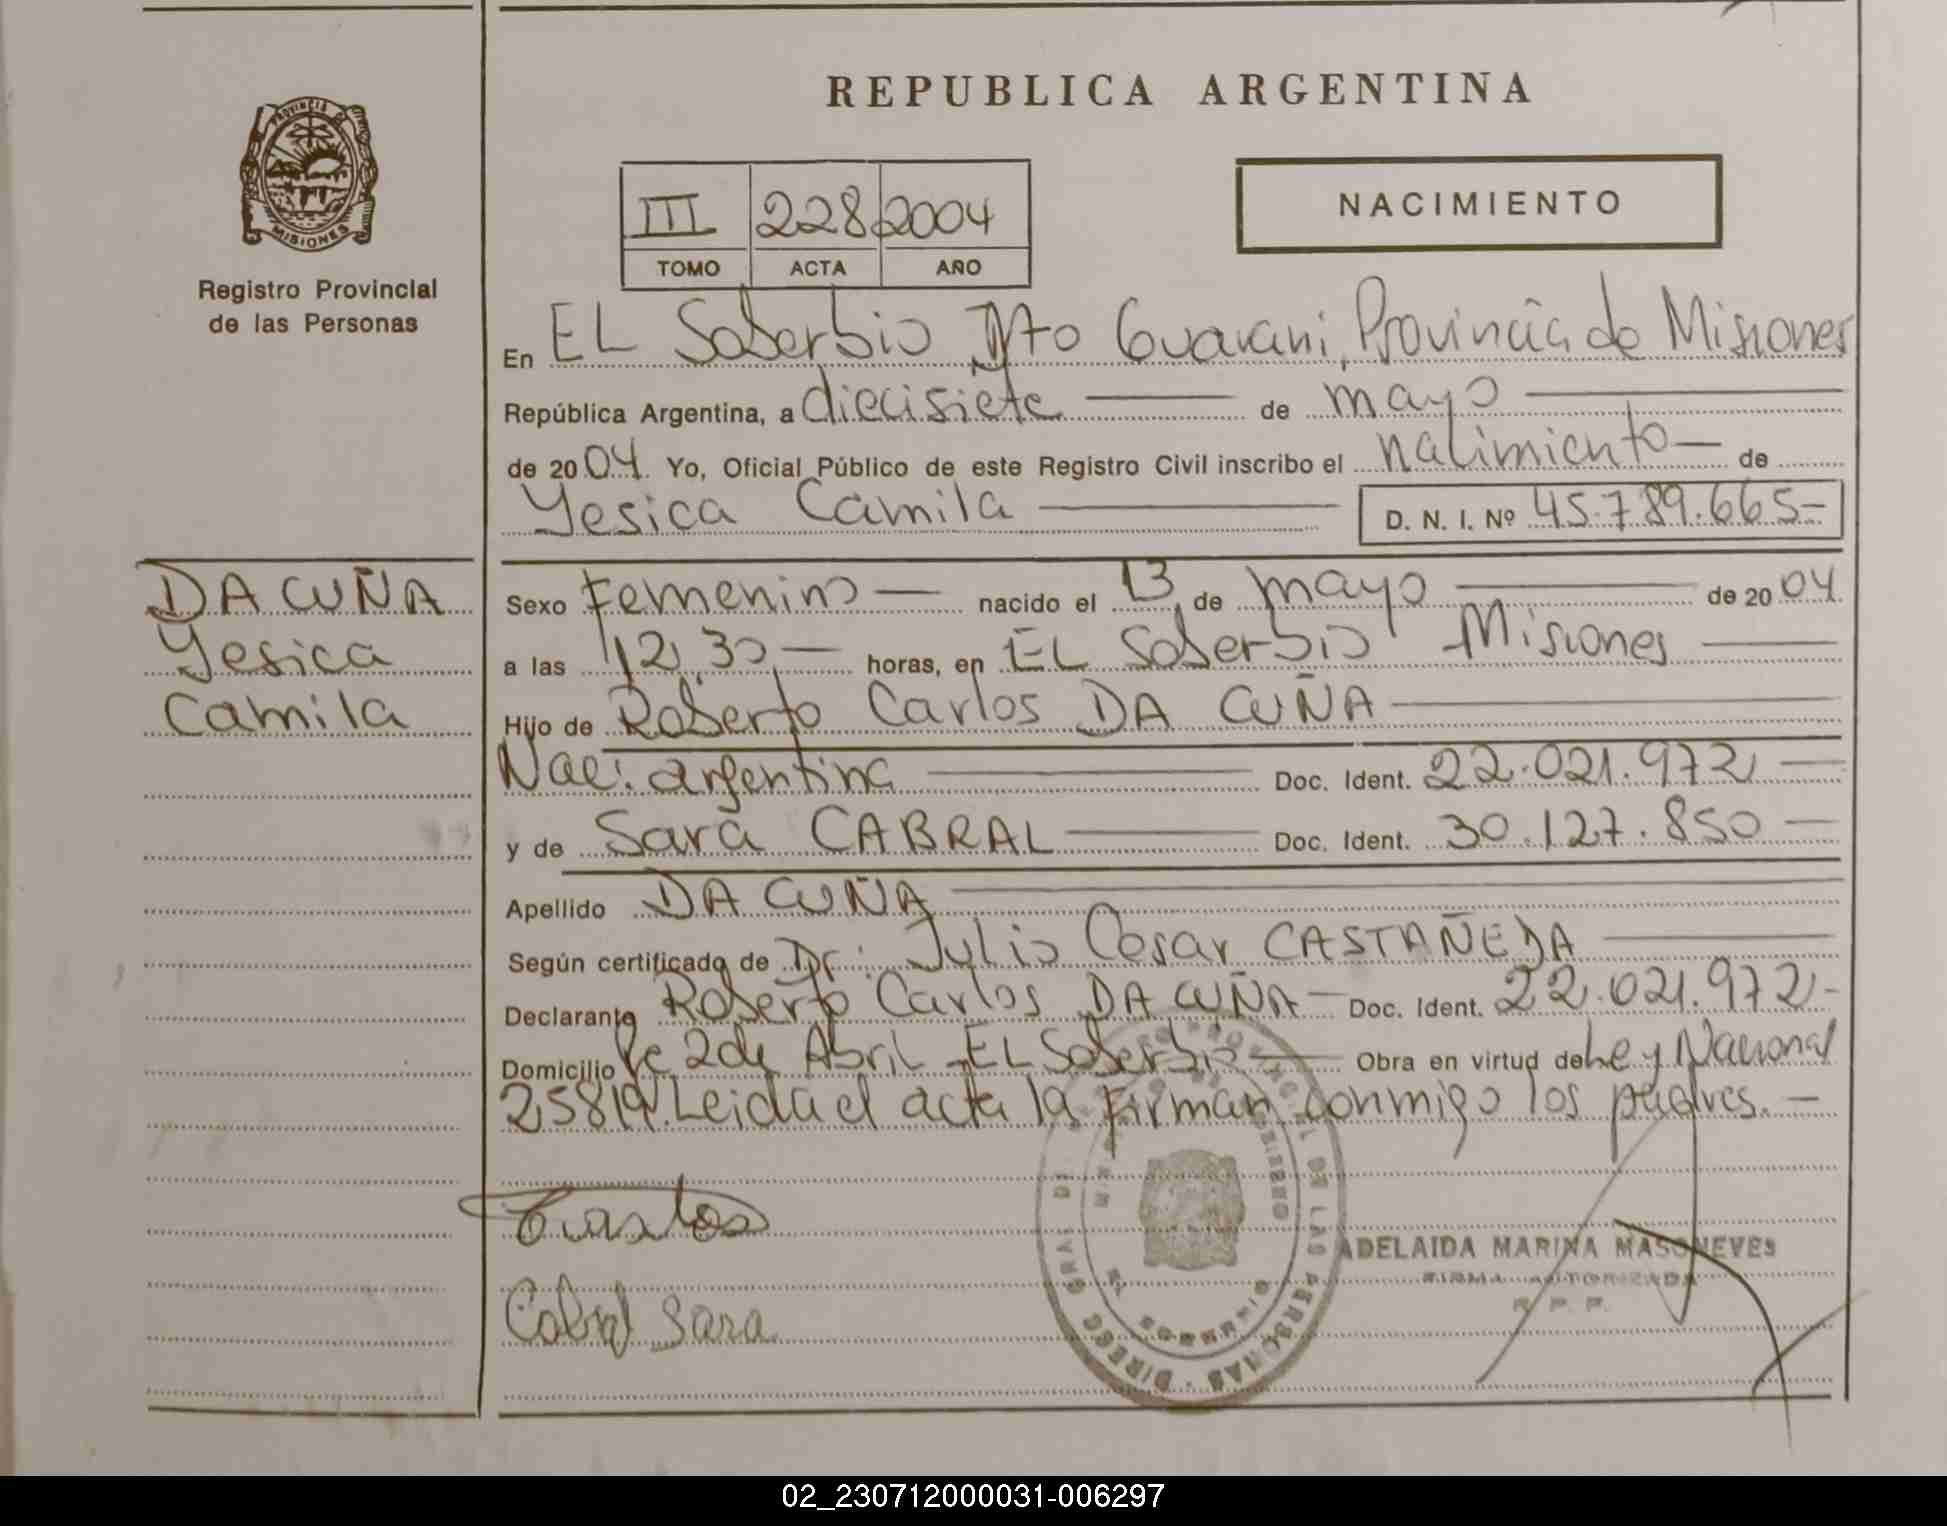 REPUBLICA ARGENTINA
PROVINCIA DE
MISIONES
Registro Provincial
de las Personas
III 228 2004
TOMO ACTA AÑO
NACIMIENTO
En EL Soberbio Dto Guarani, Provincia de Misiones
República Argentina, a diecisiete de mayo
de 2004. Yo, Oficial Público de este Registro Civil inscribo el nacimiento de
Yesica Camila D. N. I. Nº 45.789.665-
DA CUÑA
Yesica
Camila
Sexo Femenino nacido el 13 de mayo de 2004
a las 12,30 horas, en EL Soberbio Misiones
Hijo de Roberto Carlos DA CUÑA
Nac: argentina Doc. Ident. 22.021.972
y de Sara CABRAL Doc. Ident. 30.127.850
Apellido DA CUÑA
Según certificado de Dr. Julio Cesar CASTAÑEDA
Declarante Roberto Carlos DA CUÑA Doc. Ident. 22.021.972-
Domicilio 2 de Abril EL Soberbio Obra en virtud de Ley Nacional
25819. Leida el acta la firman conmigo los padres.
Carlos
Cabral Sara
ADELAIDA MARINA MAS NEVES
FIRMA AUTORIZADA
R. P. P.
02_230712000031-006297